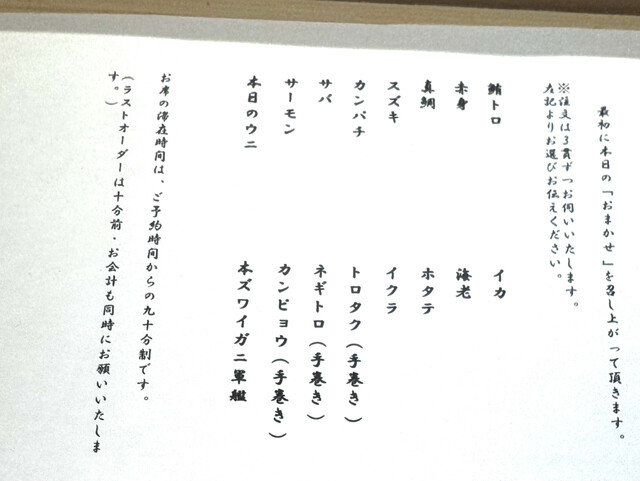 最初に本日の「おまかせ」を召し上がって頂きます。
※注文は3貫ずつお伺いいたします。
左記よりお選びお伝えください。
鮪トロ
イカ
赤身
海老
真鯛
ホタテ
スズキ
イクラ
カンパチ
トロタク(手巻き)
サバ
ネギトロ(手巻き)
サーモン
カンピョウ(手巻き)
本日のウニ
本ズワイガニ軍艦
お席の滞在時間は、ご予約時間からの九十分制です。
(ラストオーダーは十分前・お会計も同時にお願いいたしま
す。)